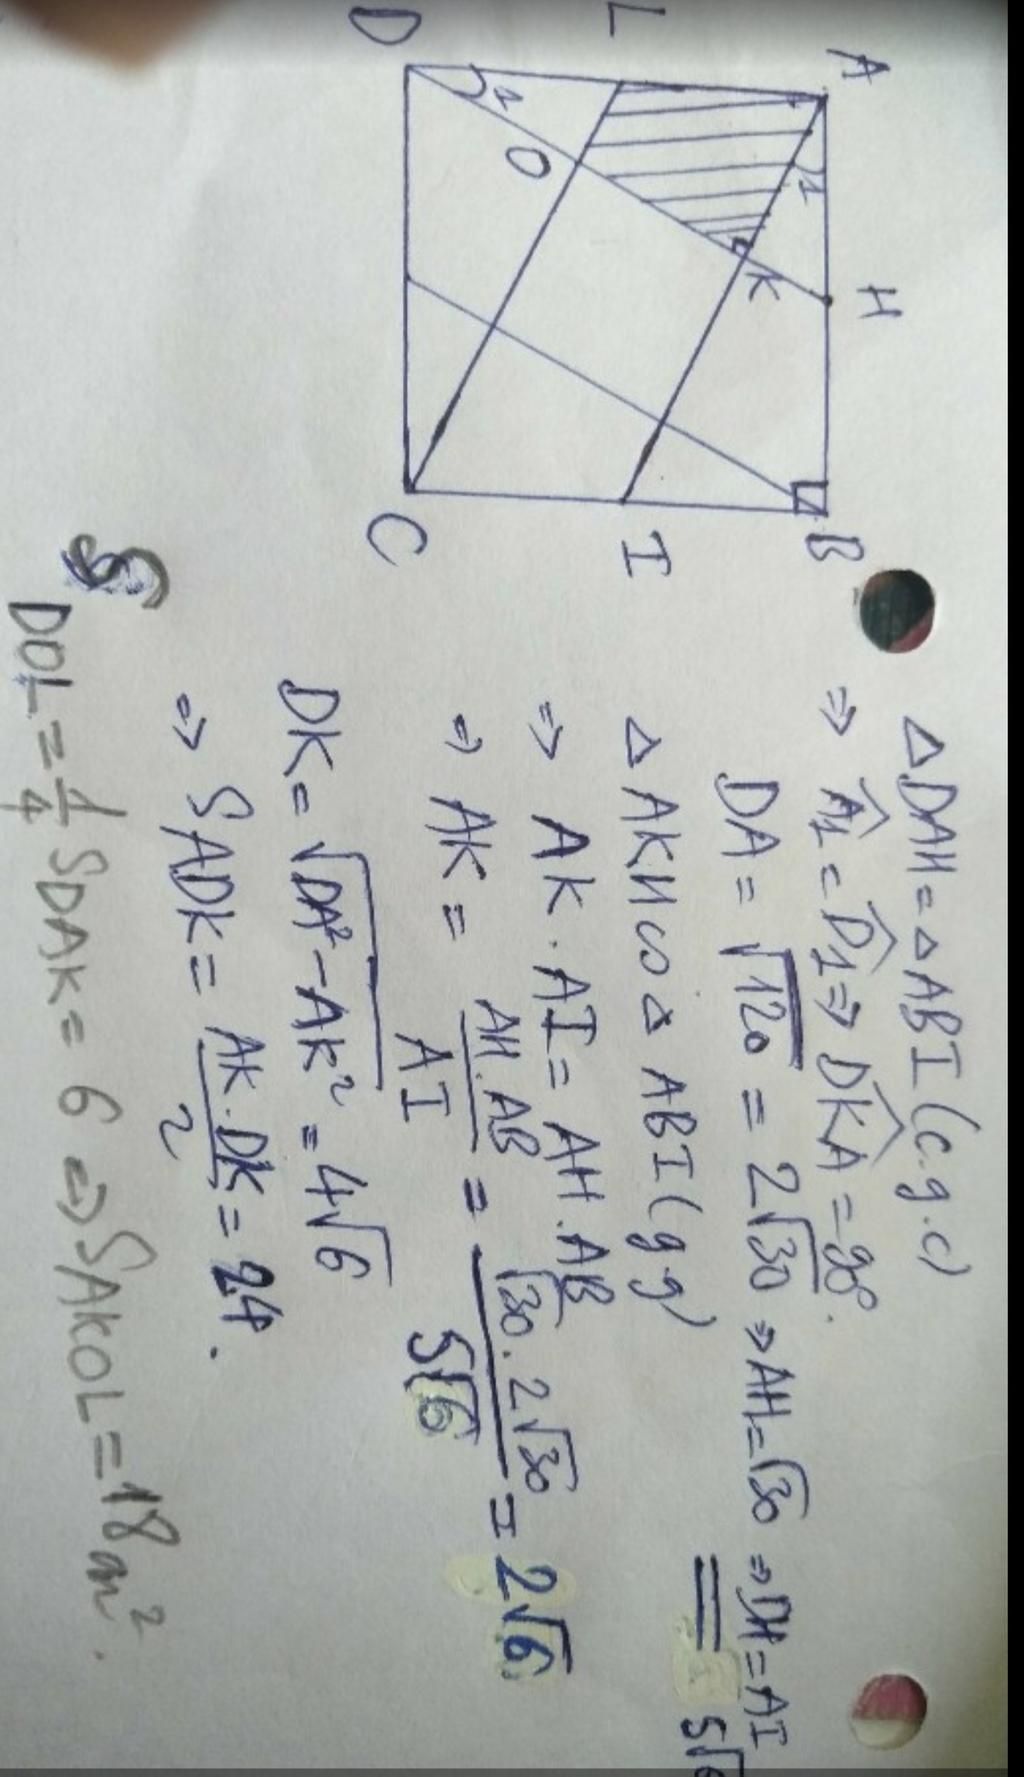 A
H
B
L
K
I
O
D
C
1
1
ΔDAH = ΔABI (c.g.c)
⇒ Â1 = D̂1 ⇒ DKA = 90°.
DA = √120 = 2√30 ⇒ AH = √30 ⇒ DH = AI
= 5√6
ΔAKH ∽ ΔABI (g.g)
⇒ AK . AI = AH . AB
⇒ AK = AH.AB / AI = √30 . 2√30 / 5√6 = 2√6
DK = √DA² - AK² = 4√6
⇒ SADK = AK . DK / 2 = 24.
S DOL = 1/4 SDAK = 6 ⇒ SAKOL = 18 m².